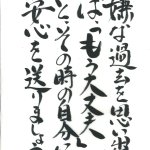 嫌な過去を思い出
は「もう大丈夫
と、その時の自分に
安心を送りましょ